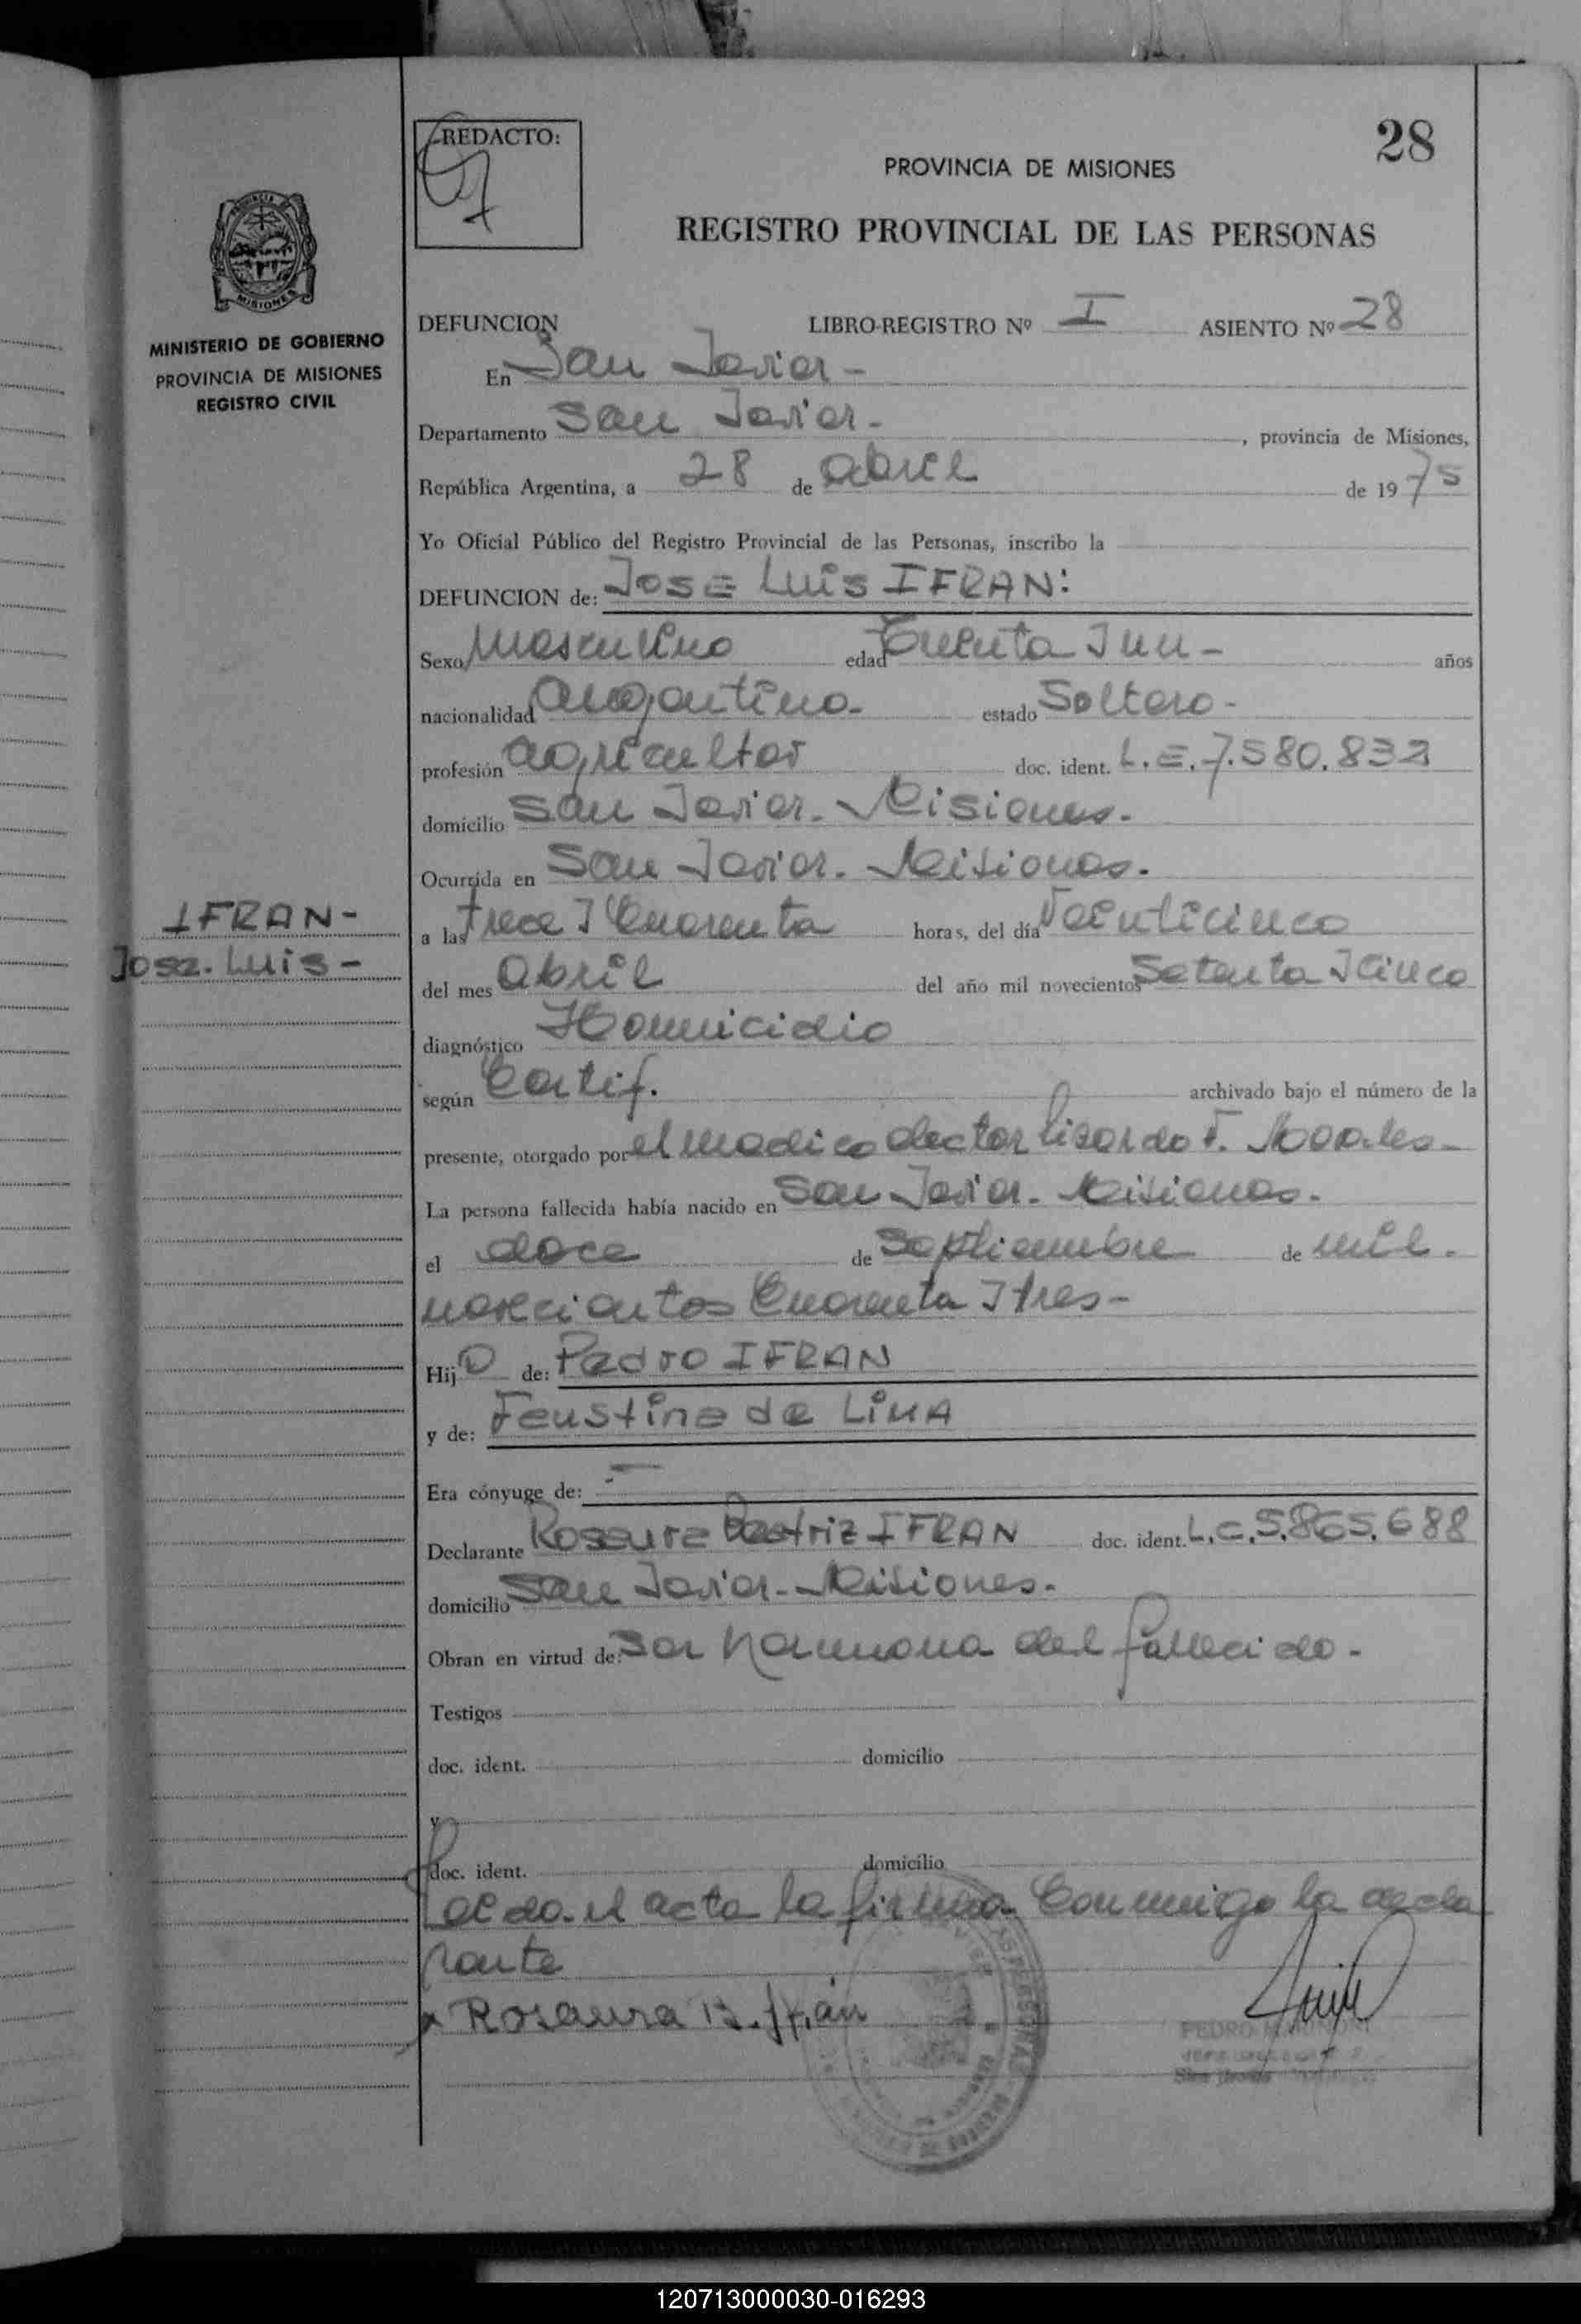 REDACTO:
28
PROVINCIA DE MISIONES
REGISTRO PROVINCIAL DE LAS PERSONAS
MISIONES
MINISTERIO DE GOBIERNO
PROVINCIA DE MISIONES
REGISTRO CIVIL
DEFUNCION LIBRO-REGISTRO Nº I ASIENTO Nº 28
En San Javier -
Departamento San Javier - , provincia de Misiones,
República Argentina, a 28 de abril de 1975
Yo Oficial Público del Registro Provincial de las Personas, inscribo la
DEFUNCION de: Jose Luis IFRAN:
Sexo Masculino edad Treinta I un - años
nacionalidad argentino - estado Soltero -
profesión agricultor doc. ident. L.E. 7.580.832
domicilio San Javier - Misiones.
Ocurrida en San Javier - Misiones.
IFRAN -
Jose. Luis -
a las trece I Cuarenta horas, del día Veinticinco
del mes abril del año mil novecientos Setenta I Cinco
diagnóstico Homicidio
según Certif. archivado bajo el número de la
presente, otorgado por el medico doctor Lisardo F.
La persona fallecida había nacido en San Javier - Misiones.
el doce de Septiembre de mil.
novecientos Cuarenta I tres -
Hijo de: Pedro IFRAN
y de: Faustina de LIMA
Era cónyuge de: -
Declarante Rosaura Beatriz IFRAN doc. ident. L.C. 5.865.688
domicilio San Javier - Misiones.
Obran en virtud de: Ser hermana del fallecido -
Testigos
doc. ident. domicilio
y
doc. ident. domicilio
Leida el acta la firma Conmigo la decla
rante
x Rosaura B. Ifrán
PEDRO
120713000030-016293